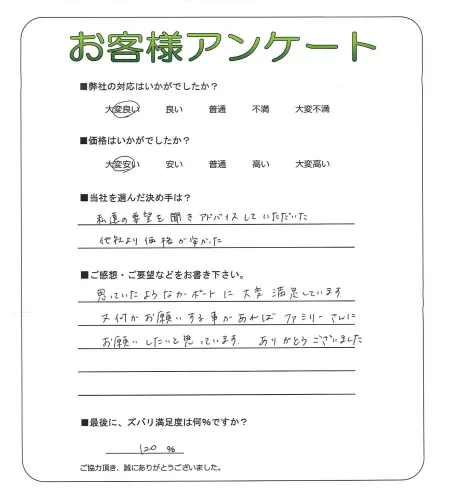 お客様アンケート
■弊社の対応はいかがでしたか？
大変良い 良い 普通 不満 大変不満
■価格はいかがでしたか？
大変安い 安い 普通 高い 大変高い
■当社を選んだ決め手は？
私達の要望を聞きアドバイスしていただいた
他社より価格が安かった
■ご感想・ご要望などをお書き下さい。
思っていたようなカーポートに大変満足しています
又何かお願いする事があれば ファミリーさんに
お願いしたいと思っています. ありがとうございました
■最後に、ズバリ満足度は何％ですか？
120 %
ご協力頂き、誠にありがとうございました。